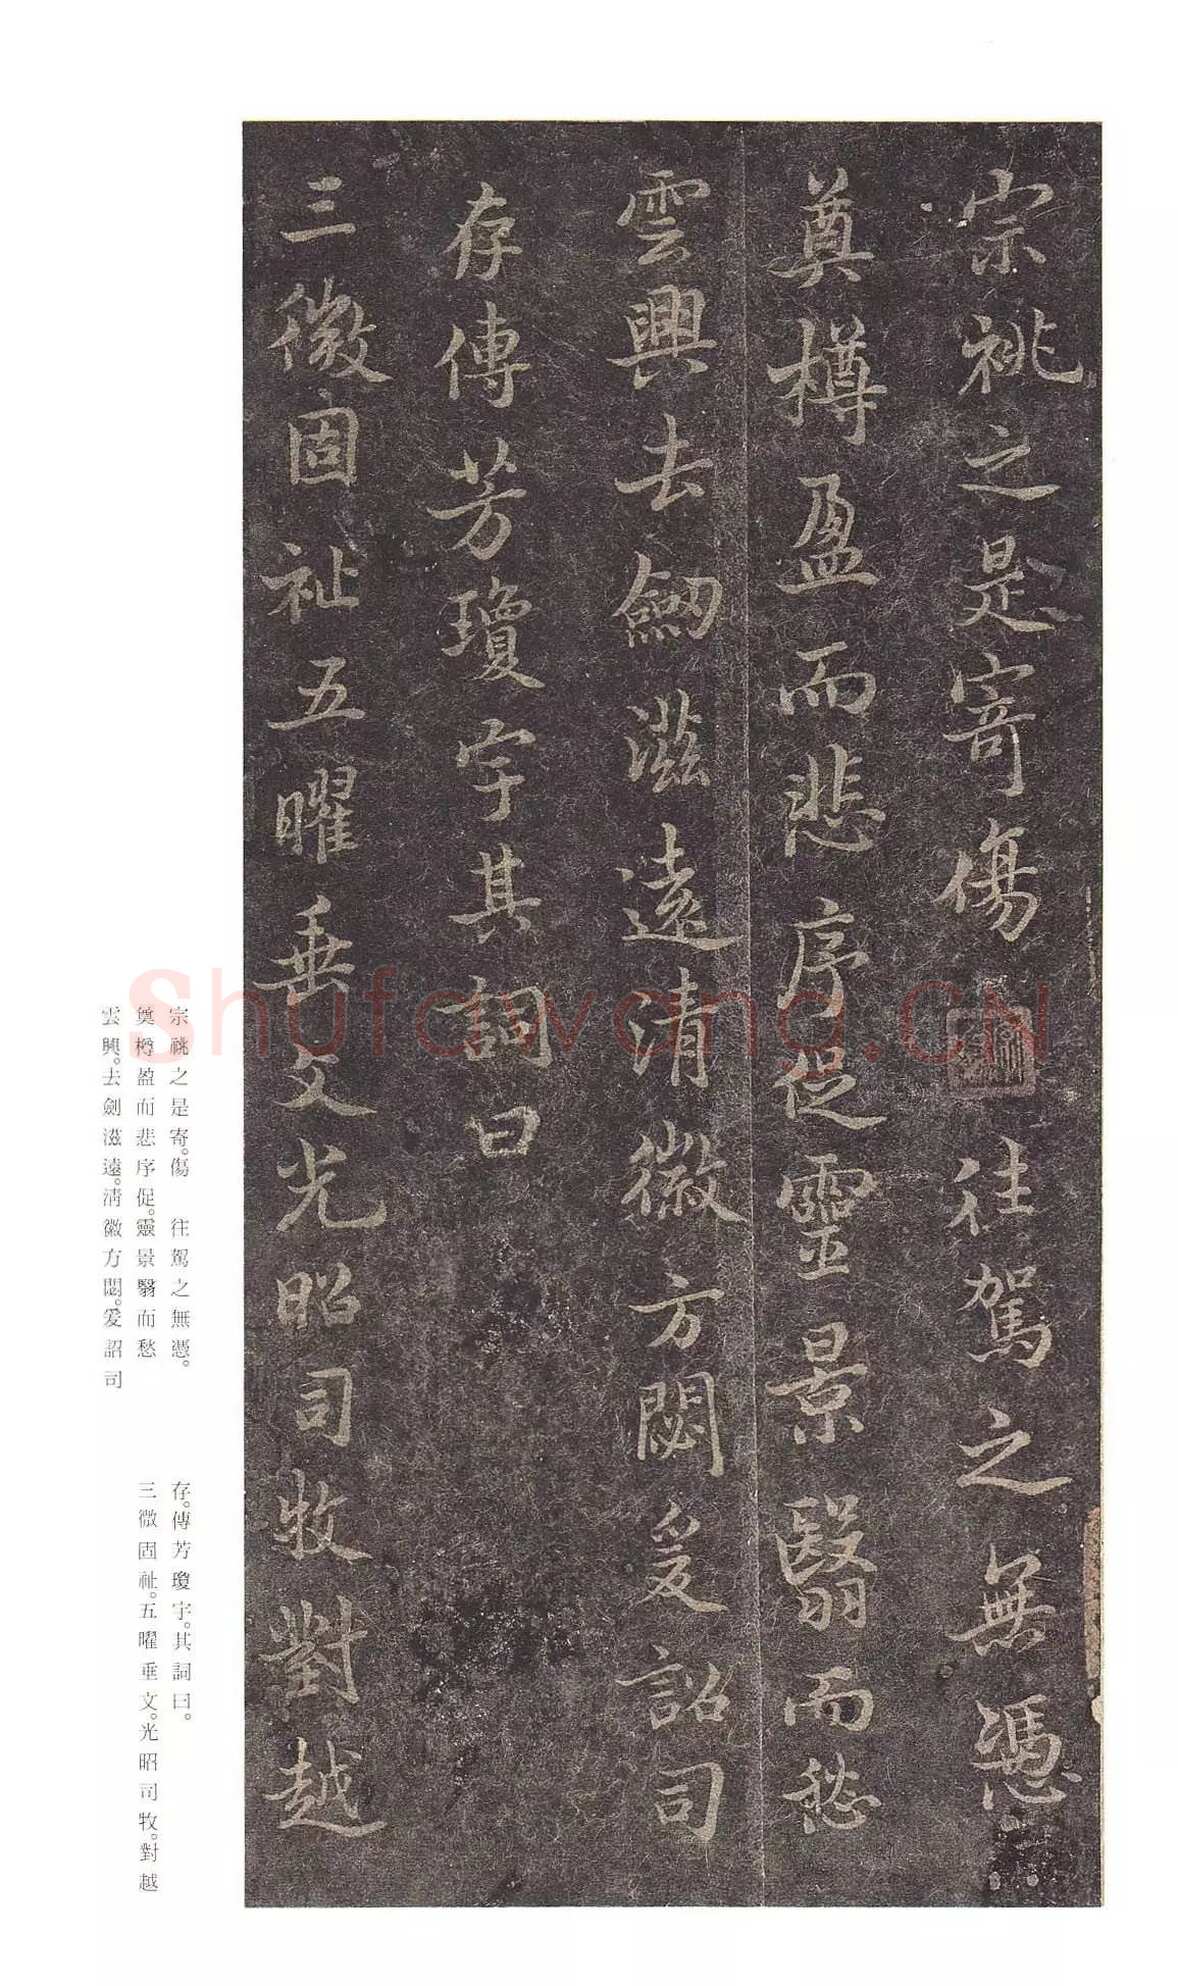 宗祧之是寄傷往駕之無憑
奠樽盈而悲序促靈景翳而愁
雲興去劒滋遠清徽方閟爰詔司
存傳芳瓊宇其詞曰
三微固祉五曜垂文光昭司牧對越
宗祧之是寄。傷　往駕之無憑。
奠樽盈而悲序促。靈景翳而愁
雲興。去劍滋遠。清徽方閟。爰詔司
存。傳芳瓊宇。其詞曰。
三微固祉。五曜垂文。光昭司牧。對越
Shufawang.CN